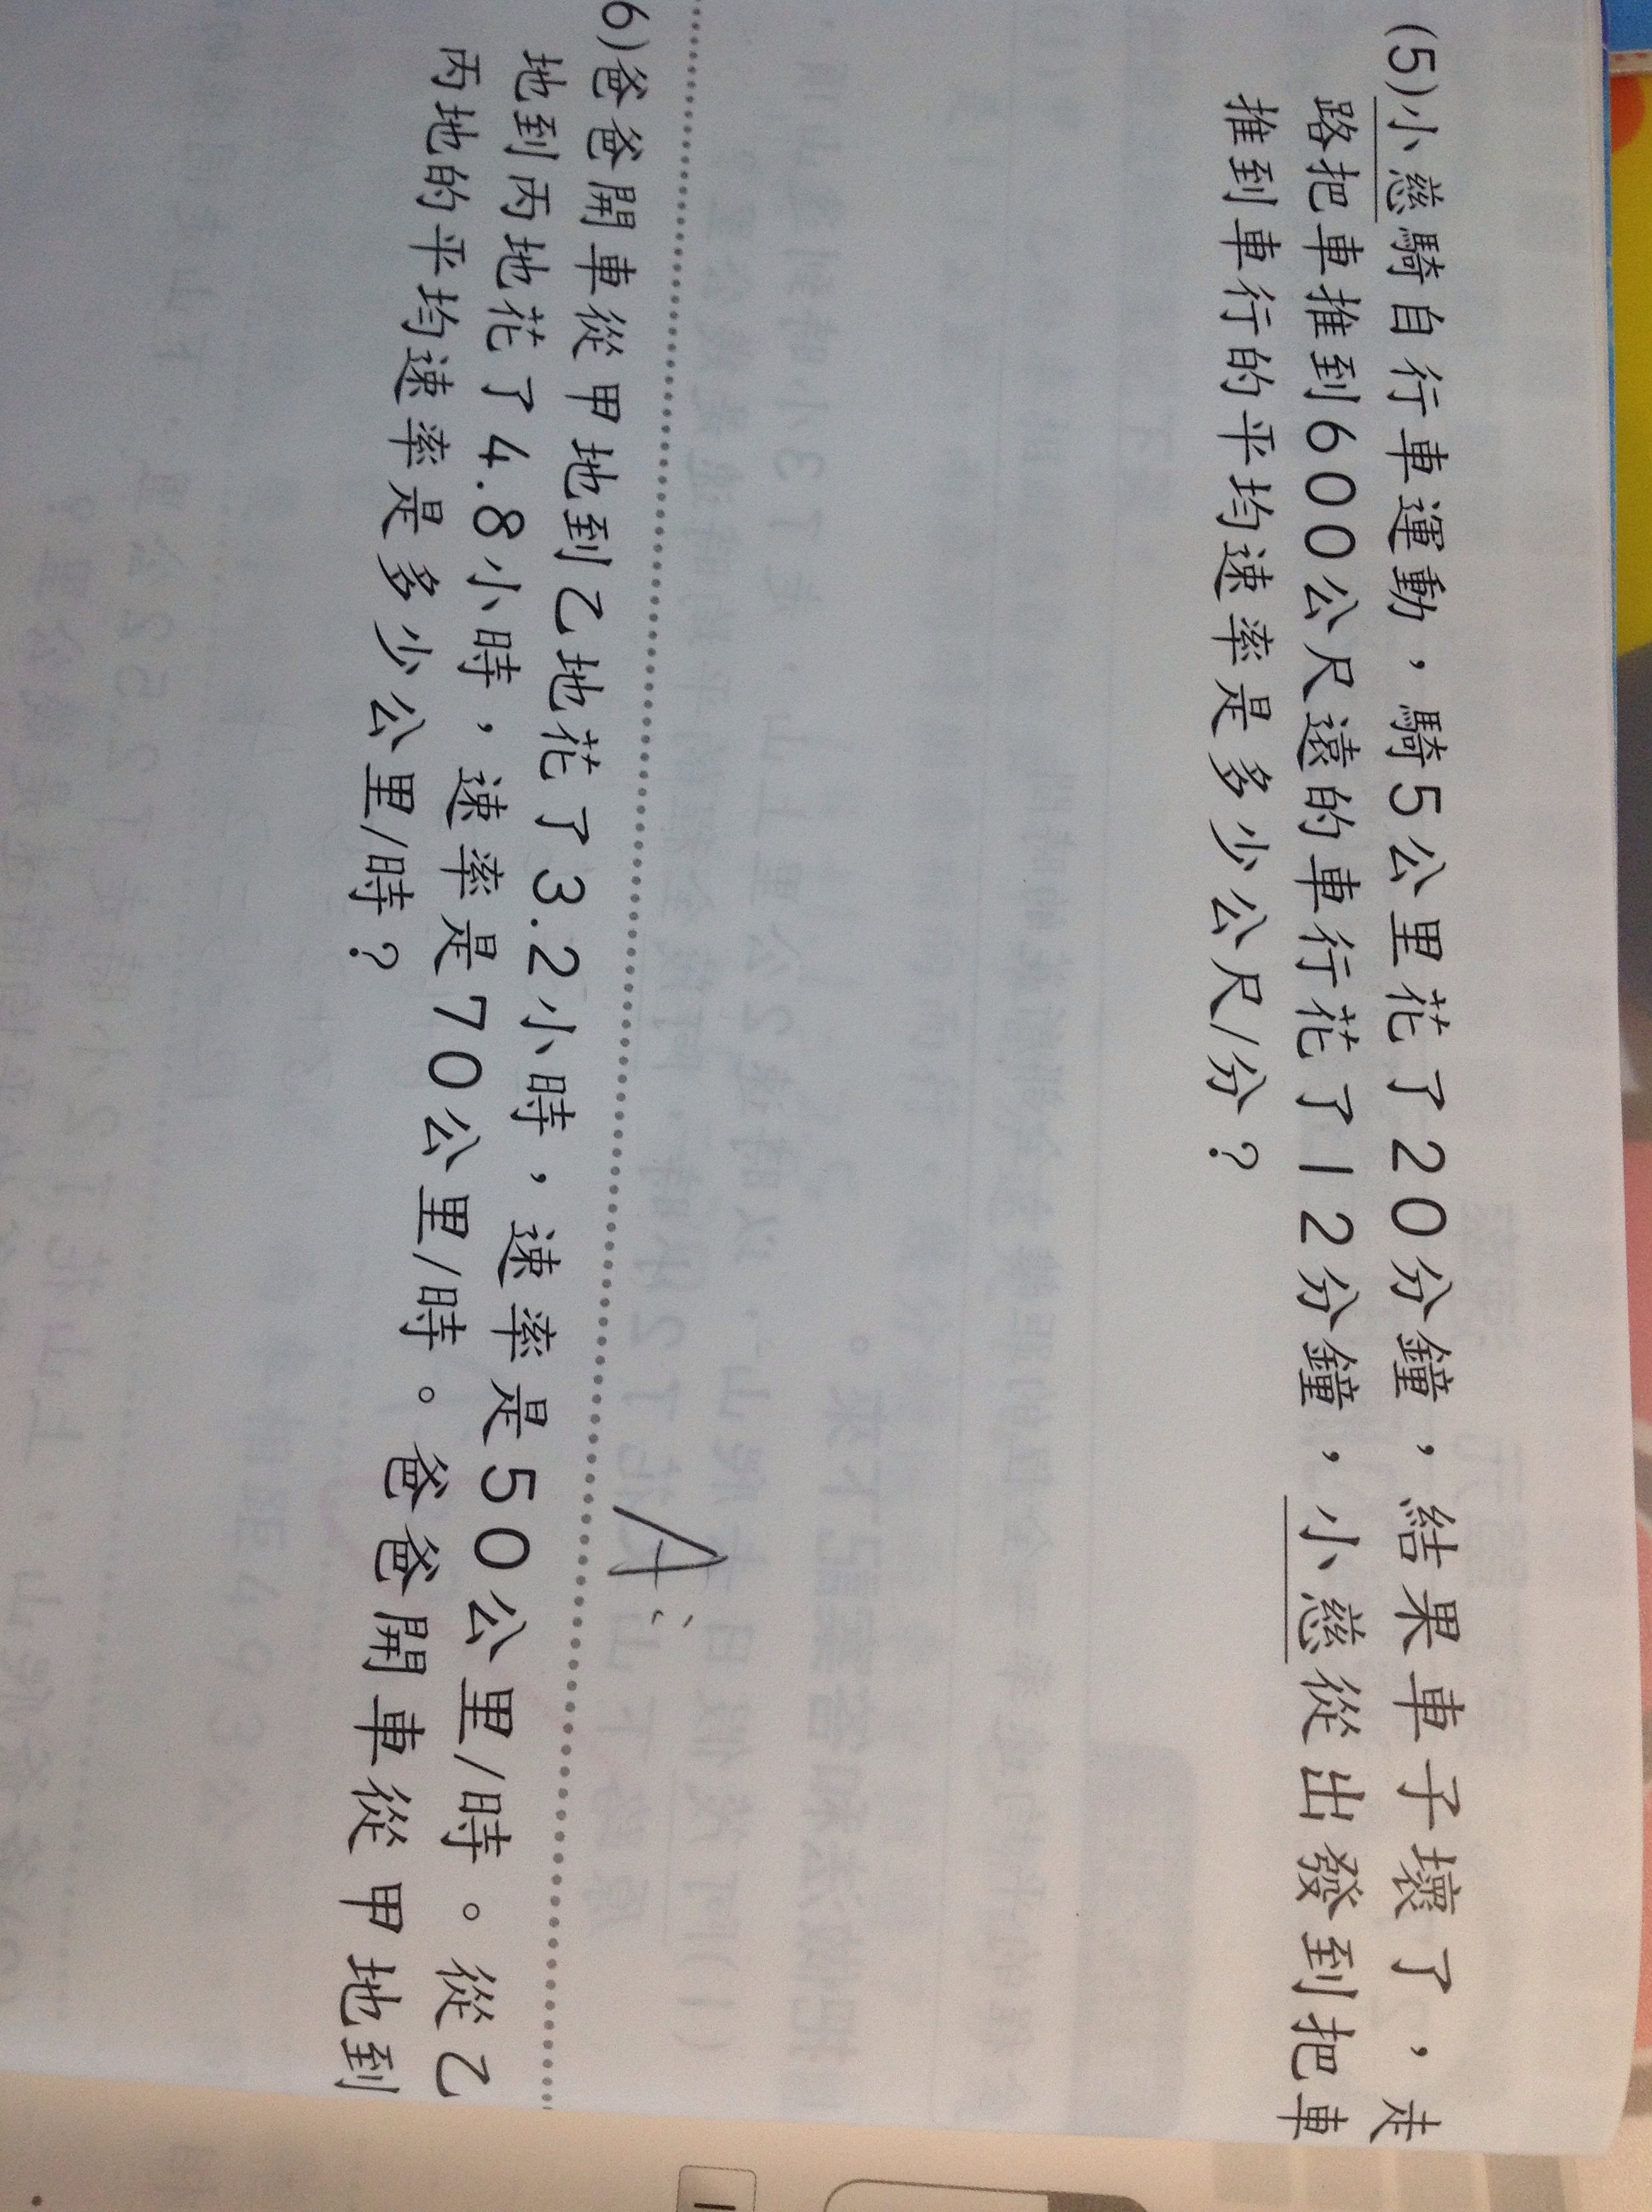 (5)小慈騎自行車運動，騎5公里花了20分鐘，結果車子壞了，走
路把車推到600公尺遠的車行花了12分鐘，小慈從出發到把車
推到車行的平均速率是多少公尺/分？
A:
6)爸爸開車從甲地到乙地花了3.2小時，速率是50公里/時。從乙
地到丙地花了4.8小時，速率是70公里/時。爸爸開車從甲地到
丙地的平均速率是多少公里/時？